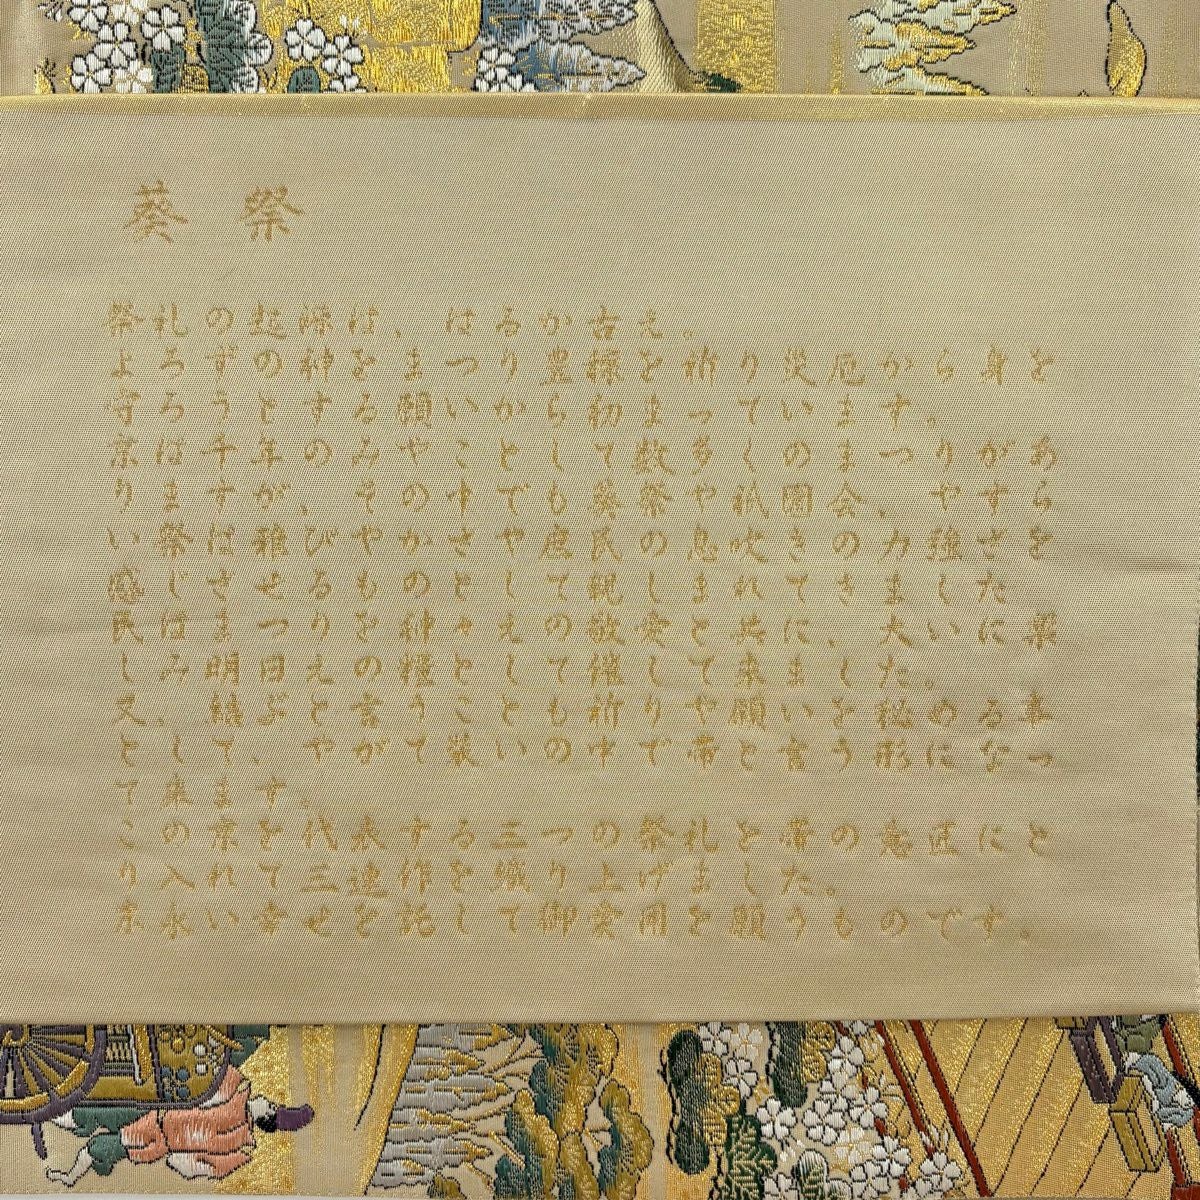 葵祭
祭礼の起源は、はるか古え。
よろずの神をまつり豊穣を祈り災厄から身を
守ろうとする願いから初まっています。
京は千年のみやことして数多くのまつりがあ
りますが、その中でも葵祭や祇園会、やすら
い祭は雅びやかさや庶民の息吹きの力強さを
感じさせるものとして親しまれてきました
民はまつりを神々えの敬愛と共に、大いに楽
しみ明日えの糧として催して来ました。
又、結ぶと言うことも祈りや願いを秘める事
として、やがて装いの中で帯と言う形になっ
て来ます。
この京を代表する三つの祭礼を帯の意匠にと
り入れて三連作を織り上げました。
末永い幸せを託して御愛用を願うものです。